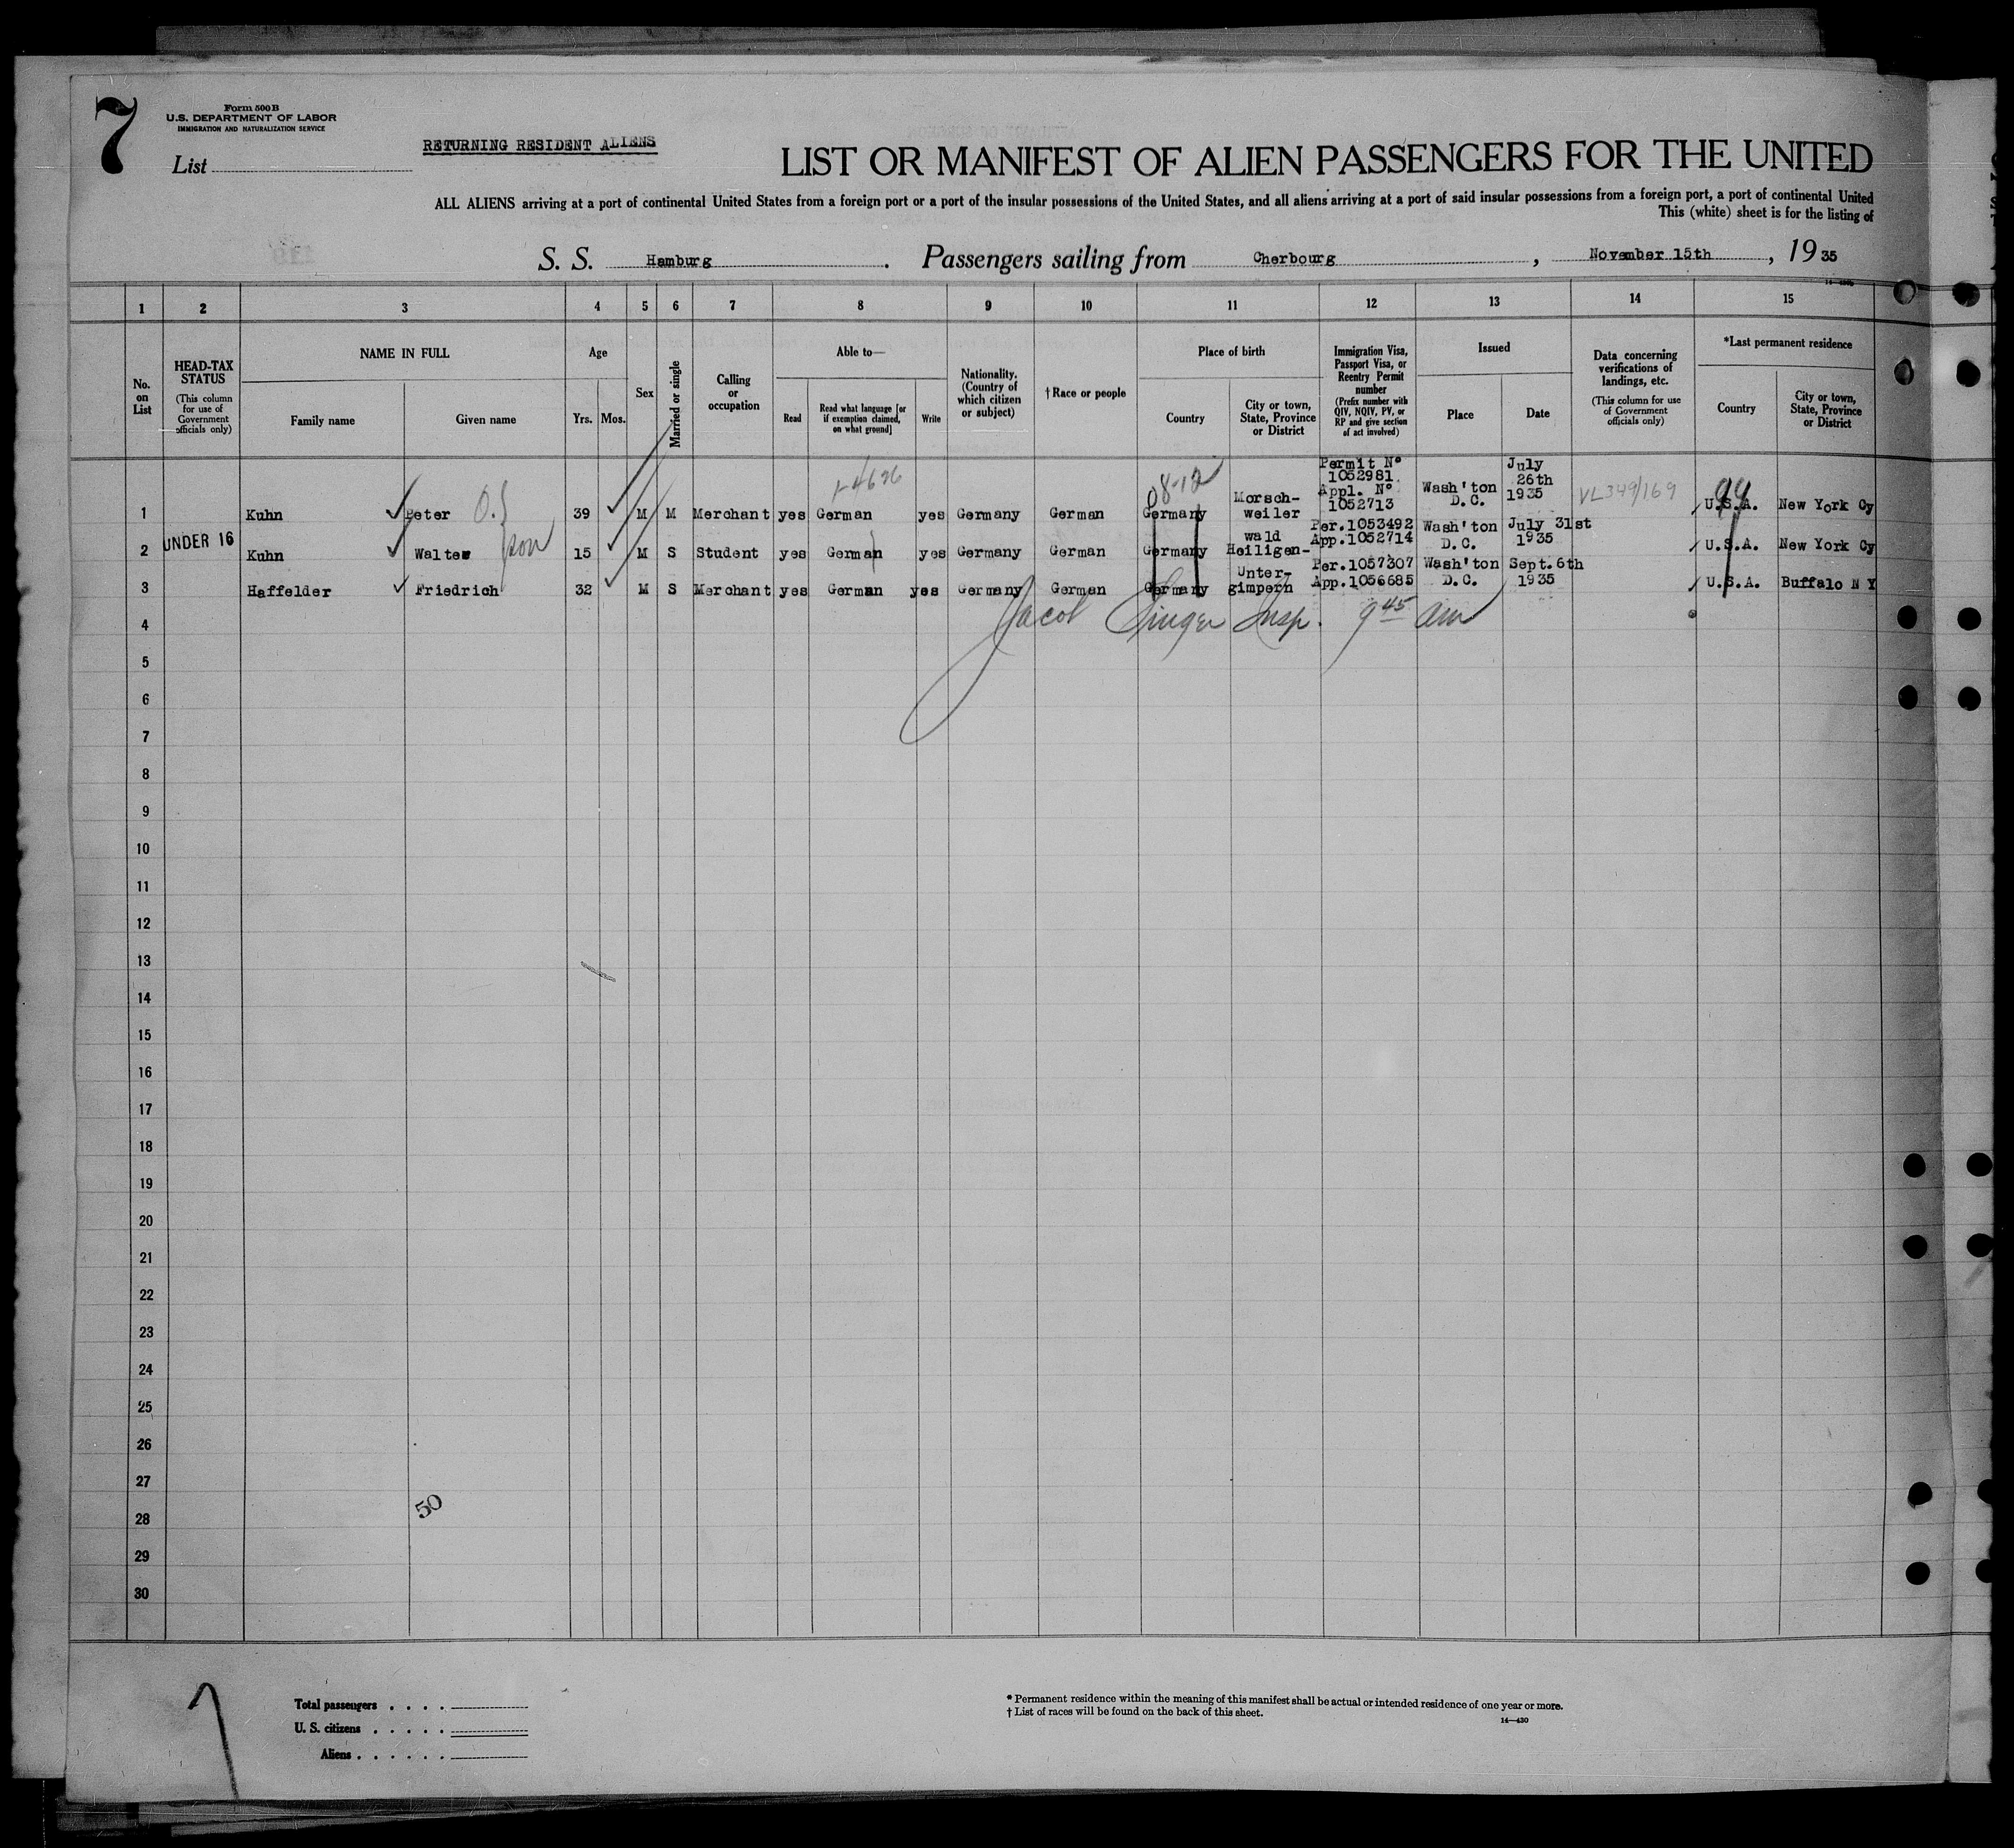 7
Form 500 B
U.S. DEPARTMENT OF LABOR
IMMIGRATION AND NATURALIZATION SERVICE
List
RETURNING RESIDENT ALIENS
LIST OR MANIFEST OF ALIEN PASSENGERS FOR THE UNITED
ALL ALIENS arriving at a port of continental United States from a foreign port or a port of the insular possessions of the United States, and all aliens arriving at a port of said insular possessions from a foreign port, a port of continental United
This (white) sheet is for the listing of
S. S. Hamburg. Passengers sailing from Cherbourg, November 15th, 19 35
1 2 3 4 5 6 7 8 9 10 11 12 13 14 15
No. on List
HEAD-TAX STATUS
(This column for use of Government officials only)
NAME IN FULL
Family name Given name
Age
Yrs. Mos.
Sex
Married or single
Calling or occupation
Able to—
Read Read what language [or if exemption claimed, on what ground] Write
Nationality. (Country of which citizen or subject)
† Race or people
Place of birth
Country City or town, State, Province or District
Immigration Visa, Passport Visa, or Reentry Permit number
(Prefix number with QIV, NQIV, PV, or RP and give section of act involved)
Issued
Place Date
Data concerning verifications of landings, etc.
(This column for use of Government officials only)
*Last permanent residence
Country City or town, State, Province or District
1 Kuhn Peter O. 39 M M Merchant yes German yes Germany German Germany Morsch-weiler Permit Nº 1052981 Appl. Nº 1052713 Wash'ton D.C. July 26th 1935 VL349/169 U.S.A. New York Cy
08-12
99
2 UNDER 16 Kuhn Walter son 15 M S Student yes German yes Germany German Germany wald Heiligen- Per.1053492 App.1052714 Wash'ton D.C. July 31st 1935 U.S.A. New York Cy
3 Haffelder Friedrich 32 M S Merchant yes German yes Germany German Germany Unter-gimpern Per.1057307 App.1056685 Wash'ton D.C. Sept.6th 1935 U.S.A. Buffalo N Y
Jacob Singer Insp. 9 45 am
4
5
6
7
8
9
10
11
12
13
14
15
16
17
18
19
20
21
22
23
24
25
26
27
28
29
30
50
7
Total passengers
U. S. citizens
Aliens
* Permanent residence within the meaning of this manifest shall be actual or intended residence of one year or more.
† List of races will be found on the back of this sheet.
14—430